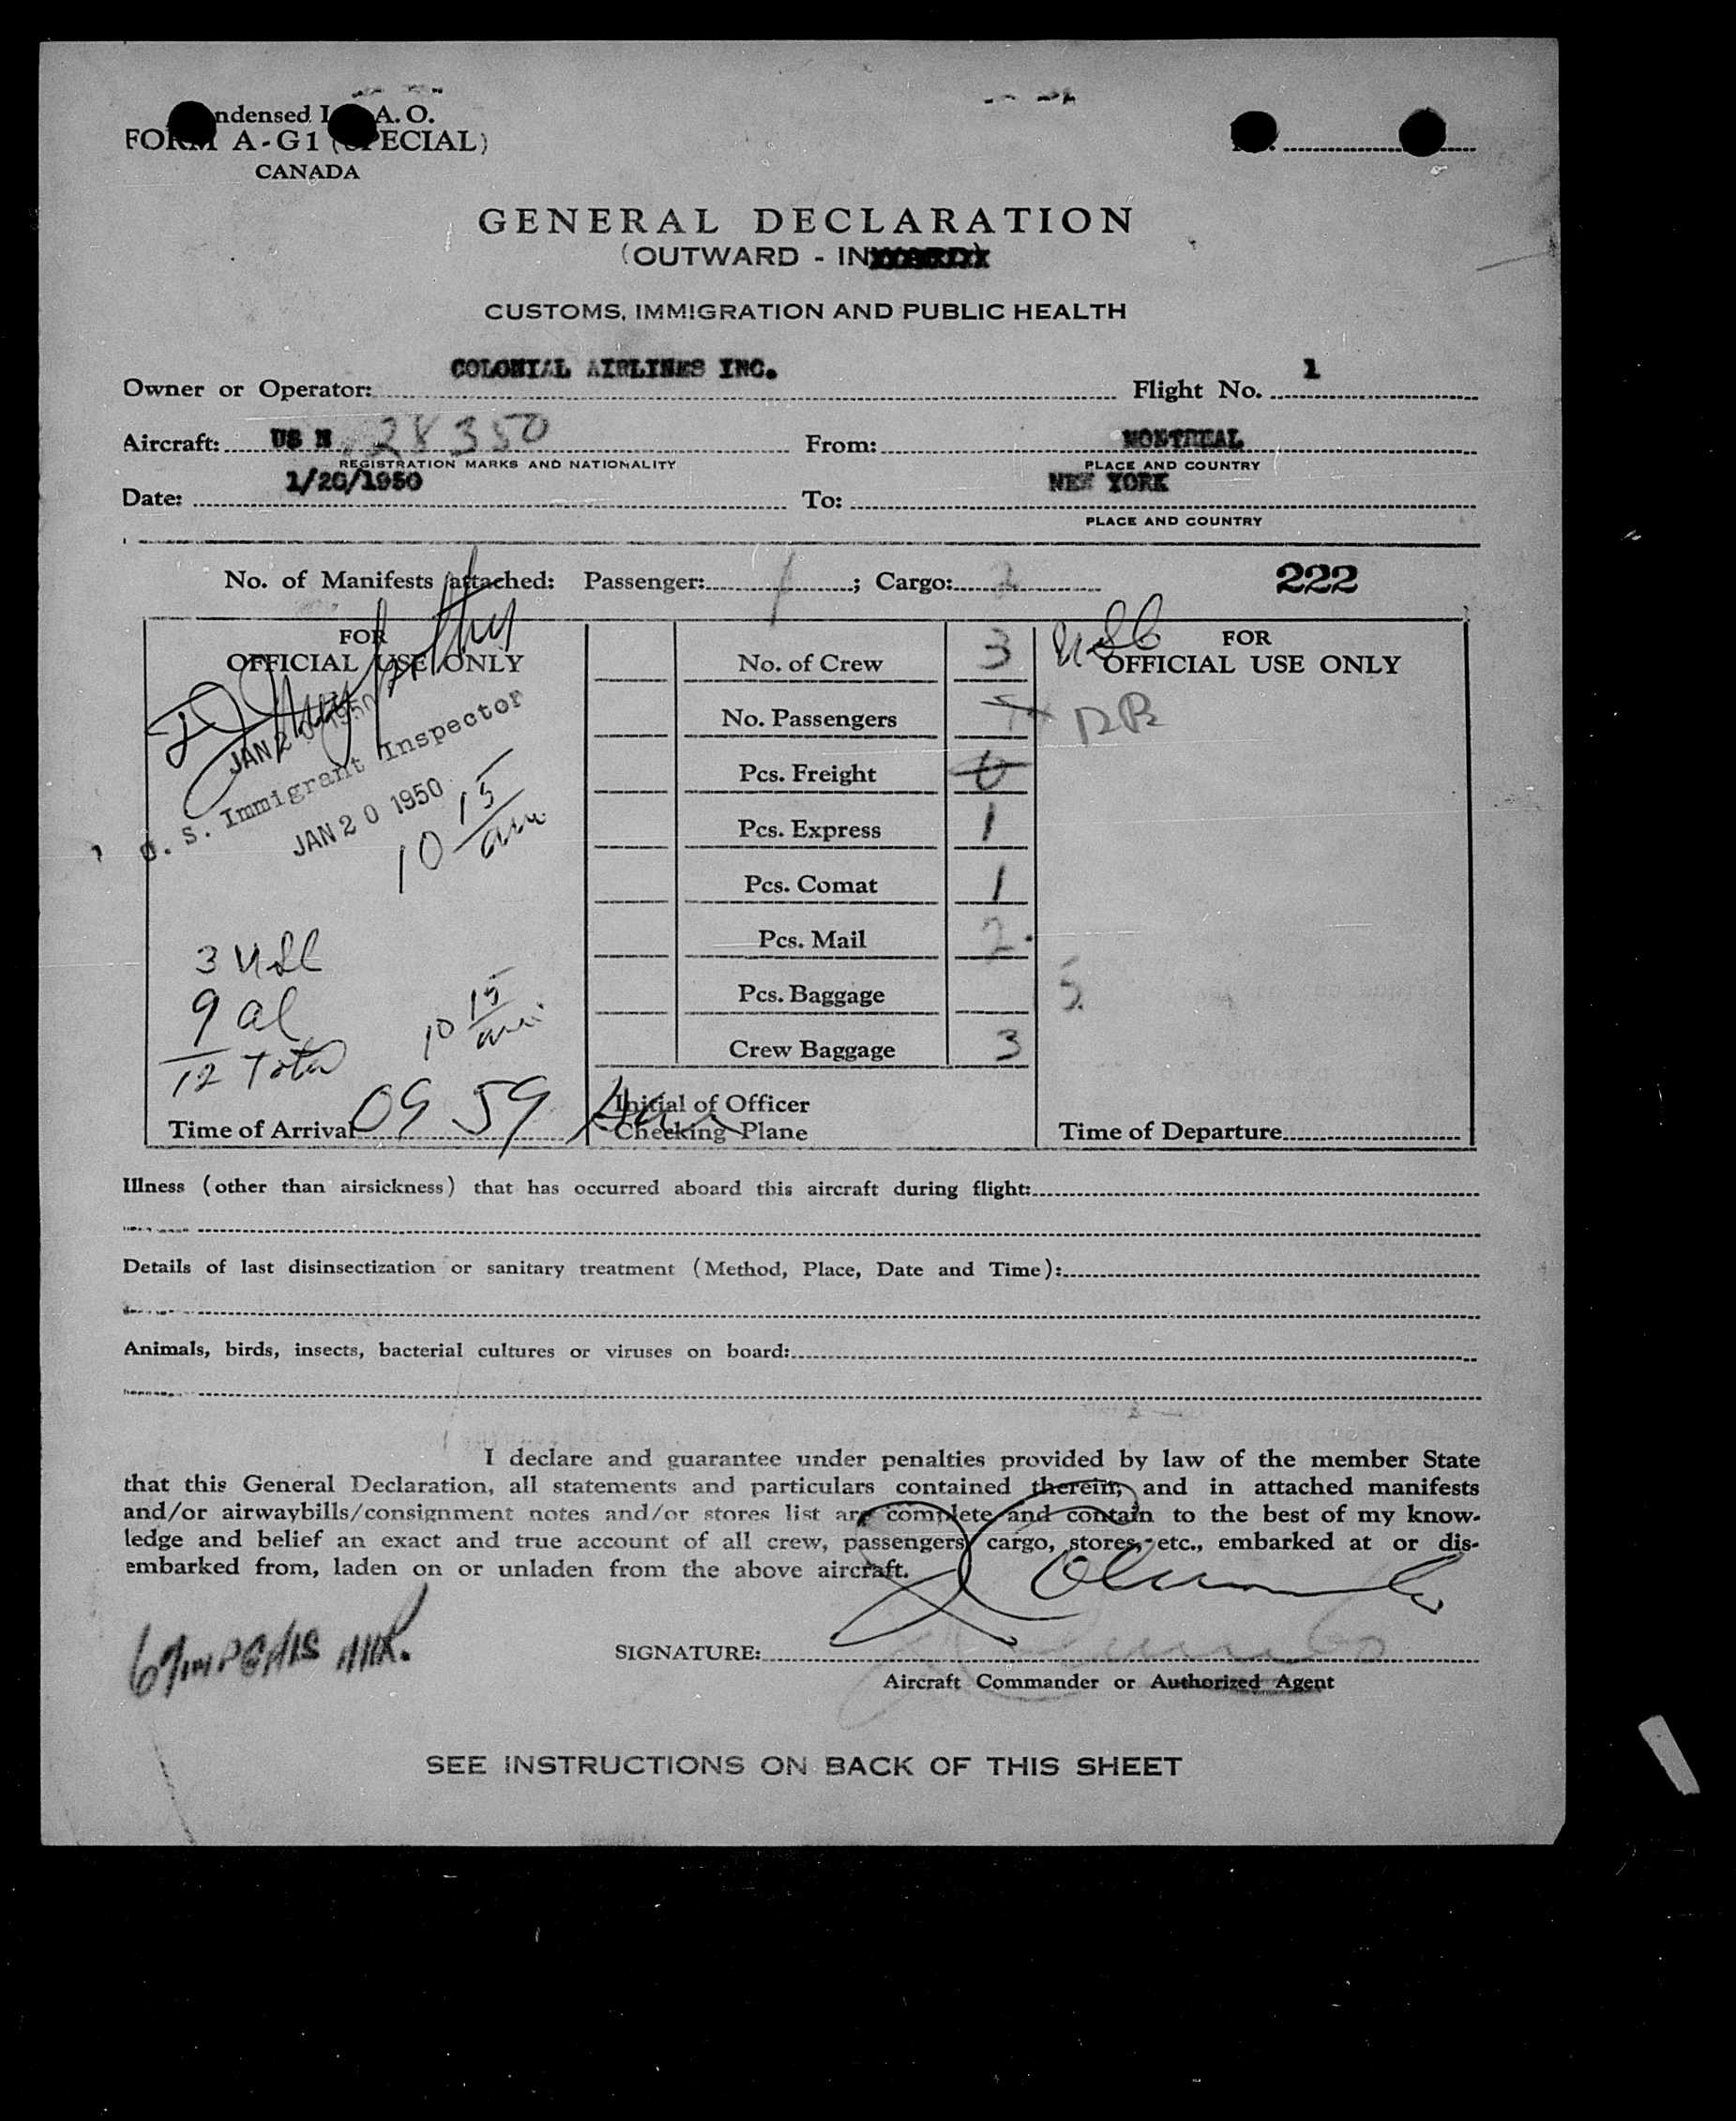 ndensed I A. O.
FORM A-G1 (SPECIAL)
CANADA
GENERAL DECLARATION
(OUTWARD - IN
CUSTOMS, IMMIGRATION AND PUBLIC HEALTH
Owner or Operator: COLONIAL AIRLINES INC. Flight No. 1
Aircraft: US N 28350 From: MONTREAL
REGISTRATION MARKS AND NATIONALITY PLACE AND COUNTRY
Date: 1/20/1950 To: NEW YORK
PLACE AND COUNTRY
No. of Manifests attached: Passenger: 1 ; Cargo: 2 222
FOR
OFFICIAL USE ONLY
JAN 20 1950
U. S. Immigrant Inspector
JAN 20 1950
10 15 am
3 USC
9 al
12 Total
10 15 am
Time of Arrival 09 59
No. of Crew 3
No. Passengers
Pcs. Freight 0
Pcs. Express 1
Pcs. Comat 1
Pcs. Mail 2
Pcs. Baggage
Crew Baggage 3
Initial of Officer
Checking Plane
USC FOR
OFFICIAL USE ONLY
5
Time of Departure
Illness (other than airsickness) that has occurred aboard this aircraft during flight:
Details of last disinsectization or sanitary treatment (Method, Place, Date and Time):
Animals, birds, insects, bacterial cultures or viruses on board:
I declare and guarantee under penalties provided by law of the member State
that this General Declaration, all statements and particulars contained therein, and in attached manifests
and/or airwaybills/consignment notes and/or stores list are complete and contain to the best of my know-
ledge and belief an exact and true account of all crew, passengers, cargo, stores, etc., embarked at or dis-
embarked from, laden on or unladen from the above aircraft.
SIGNATURE:
Aircraft Commander or Authorized Agent
SEE INSTRUCTIONS ON BACK OF THIS SHEET